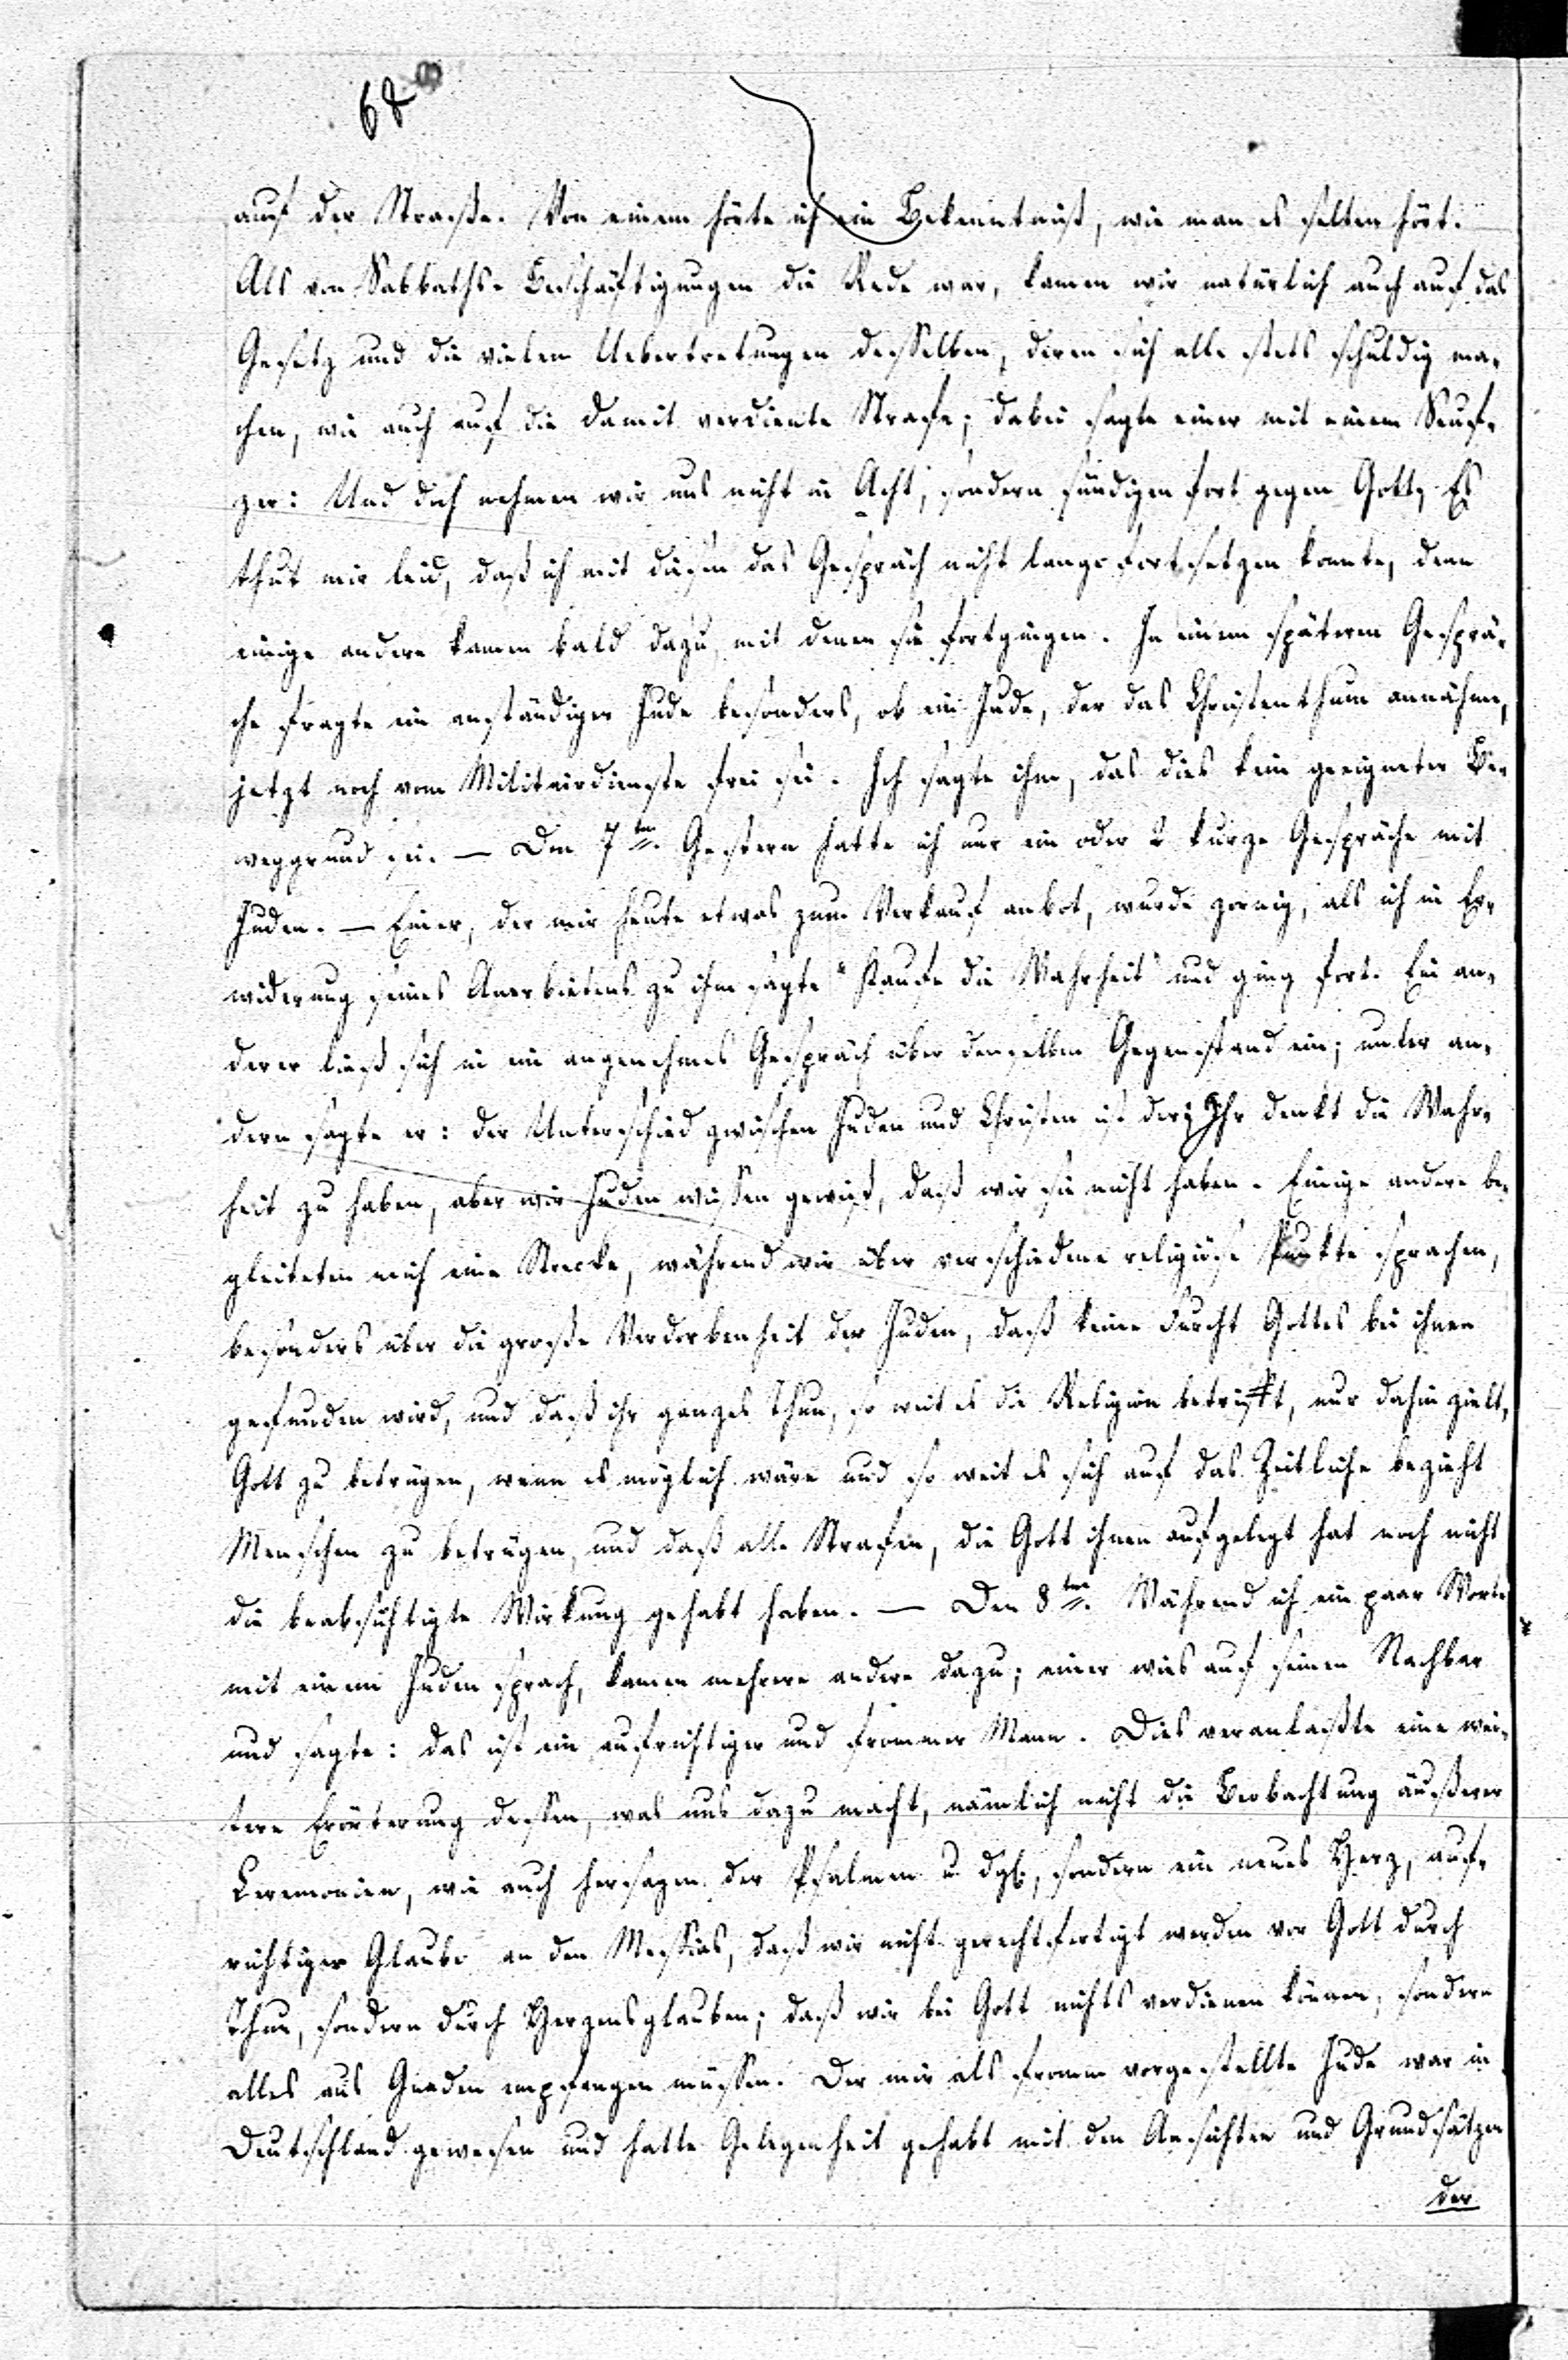 68
auf der Straße. Von einem hörte ich ein Bekenntniß, wie man es selten hört.
Als von Sabbaths-Beschäftigungen die Rede war, kamen wir natürlich auch auf das
Gesetz und die vielen Uebertretungen desselben, deren sich alle stets schuldig ma-
chen, wie auch auf die damit verdiente Strafe; dabei sagte einer mit einem Seuf-
zer: Und doch nehmen wir uns nicht in Acht, sondern sündigen fort gegen Gott. Es
thut mir leid, daß ich mit diesen das Gespräch nicht lange fortsetzen konnte, denn
einige andere kamen bald dazu, mit denen sie fortgingen. In einem späteren Gesprä-
che fragte ein anständiger Jude besonders, ob ein Jude, der das Christenthum annähme,
jetzt noch vom Militairdienste frei sei. Ich sagte ihm, das dies kein geeigneter Be-
weggrund sei. — Den 7ten. Gestern hatte ich nur ein oder 2 kurze Gespräche mit
Juden. — Einer, der mir heute etwas zum Verkauf anbot, wurde zornig, als ich in Er-
widerung seines Anerbietens zu ihm sagte "Kaufe die Wahrheit" und ging fort. Ein an-
derer ließ sich in ein angenehmes Gespräch über denselben Gegenstand ein; unter an-
dern sagte er: der Unterschied zwischen Juden und Christen ist der: Ihr denkt die Wahr-
heit zu haben, aber wir Juden wissen gewiß, daß wir sie nicht haben. Einige andere be-
gleiteten mich eine Strecke, während wir über verschiedene religiöse Punkte sprachen,
besonders über die große Verdorbenheit der Juden, daß keine Furcht Gottes bei ihnen
gefunden wird, und daß ihr ganzes Thun, so weit es die Religion betrifft, nur dahin zielt,
Gott zu betrügen, wenn es möglich wäre und so weit es sich auf das Zeitliche bezieht
Menschen zu betrügen, und daß alle Strafen, die Gott ihnen aufgelegt hat noch nicht
die beabsichtigte Wirkung gehabt haben. — Den 8ten. Während ich ein paar Worte
mit einem Juden sprach, kamen mehrere andere dazu; einer wies auf seinen Nachbar
und sagte: das ist ein aufrichtiger und frommer Mann. Dies veranlaßte eine wei-
tere Erörterung dessen, was uns dazu macht, nämlich nicht die Beobachtung äußerer
Ceremonien, wie auch hersagen der Psalmen u. dgl., sondern ein neues Herz, auf-
richtiger Glaube an den Messias, daß wir nicht gerechtfertigt werden vor Gott durch
Thun, sondern durch Herzensglauben; daß wir bei Gott nichts verdienen können, sondern
alles aus Gnaden empfangen müssen. Der mir als fromm vorgestellte Jude war in
Deutschland gewesen und hatte Gelegenheit gehabt mit den Ansichten und Grundsätzen
der